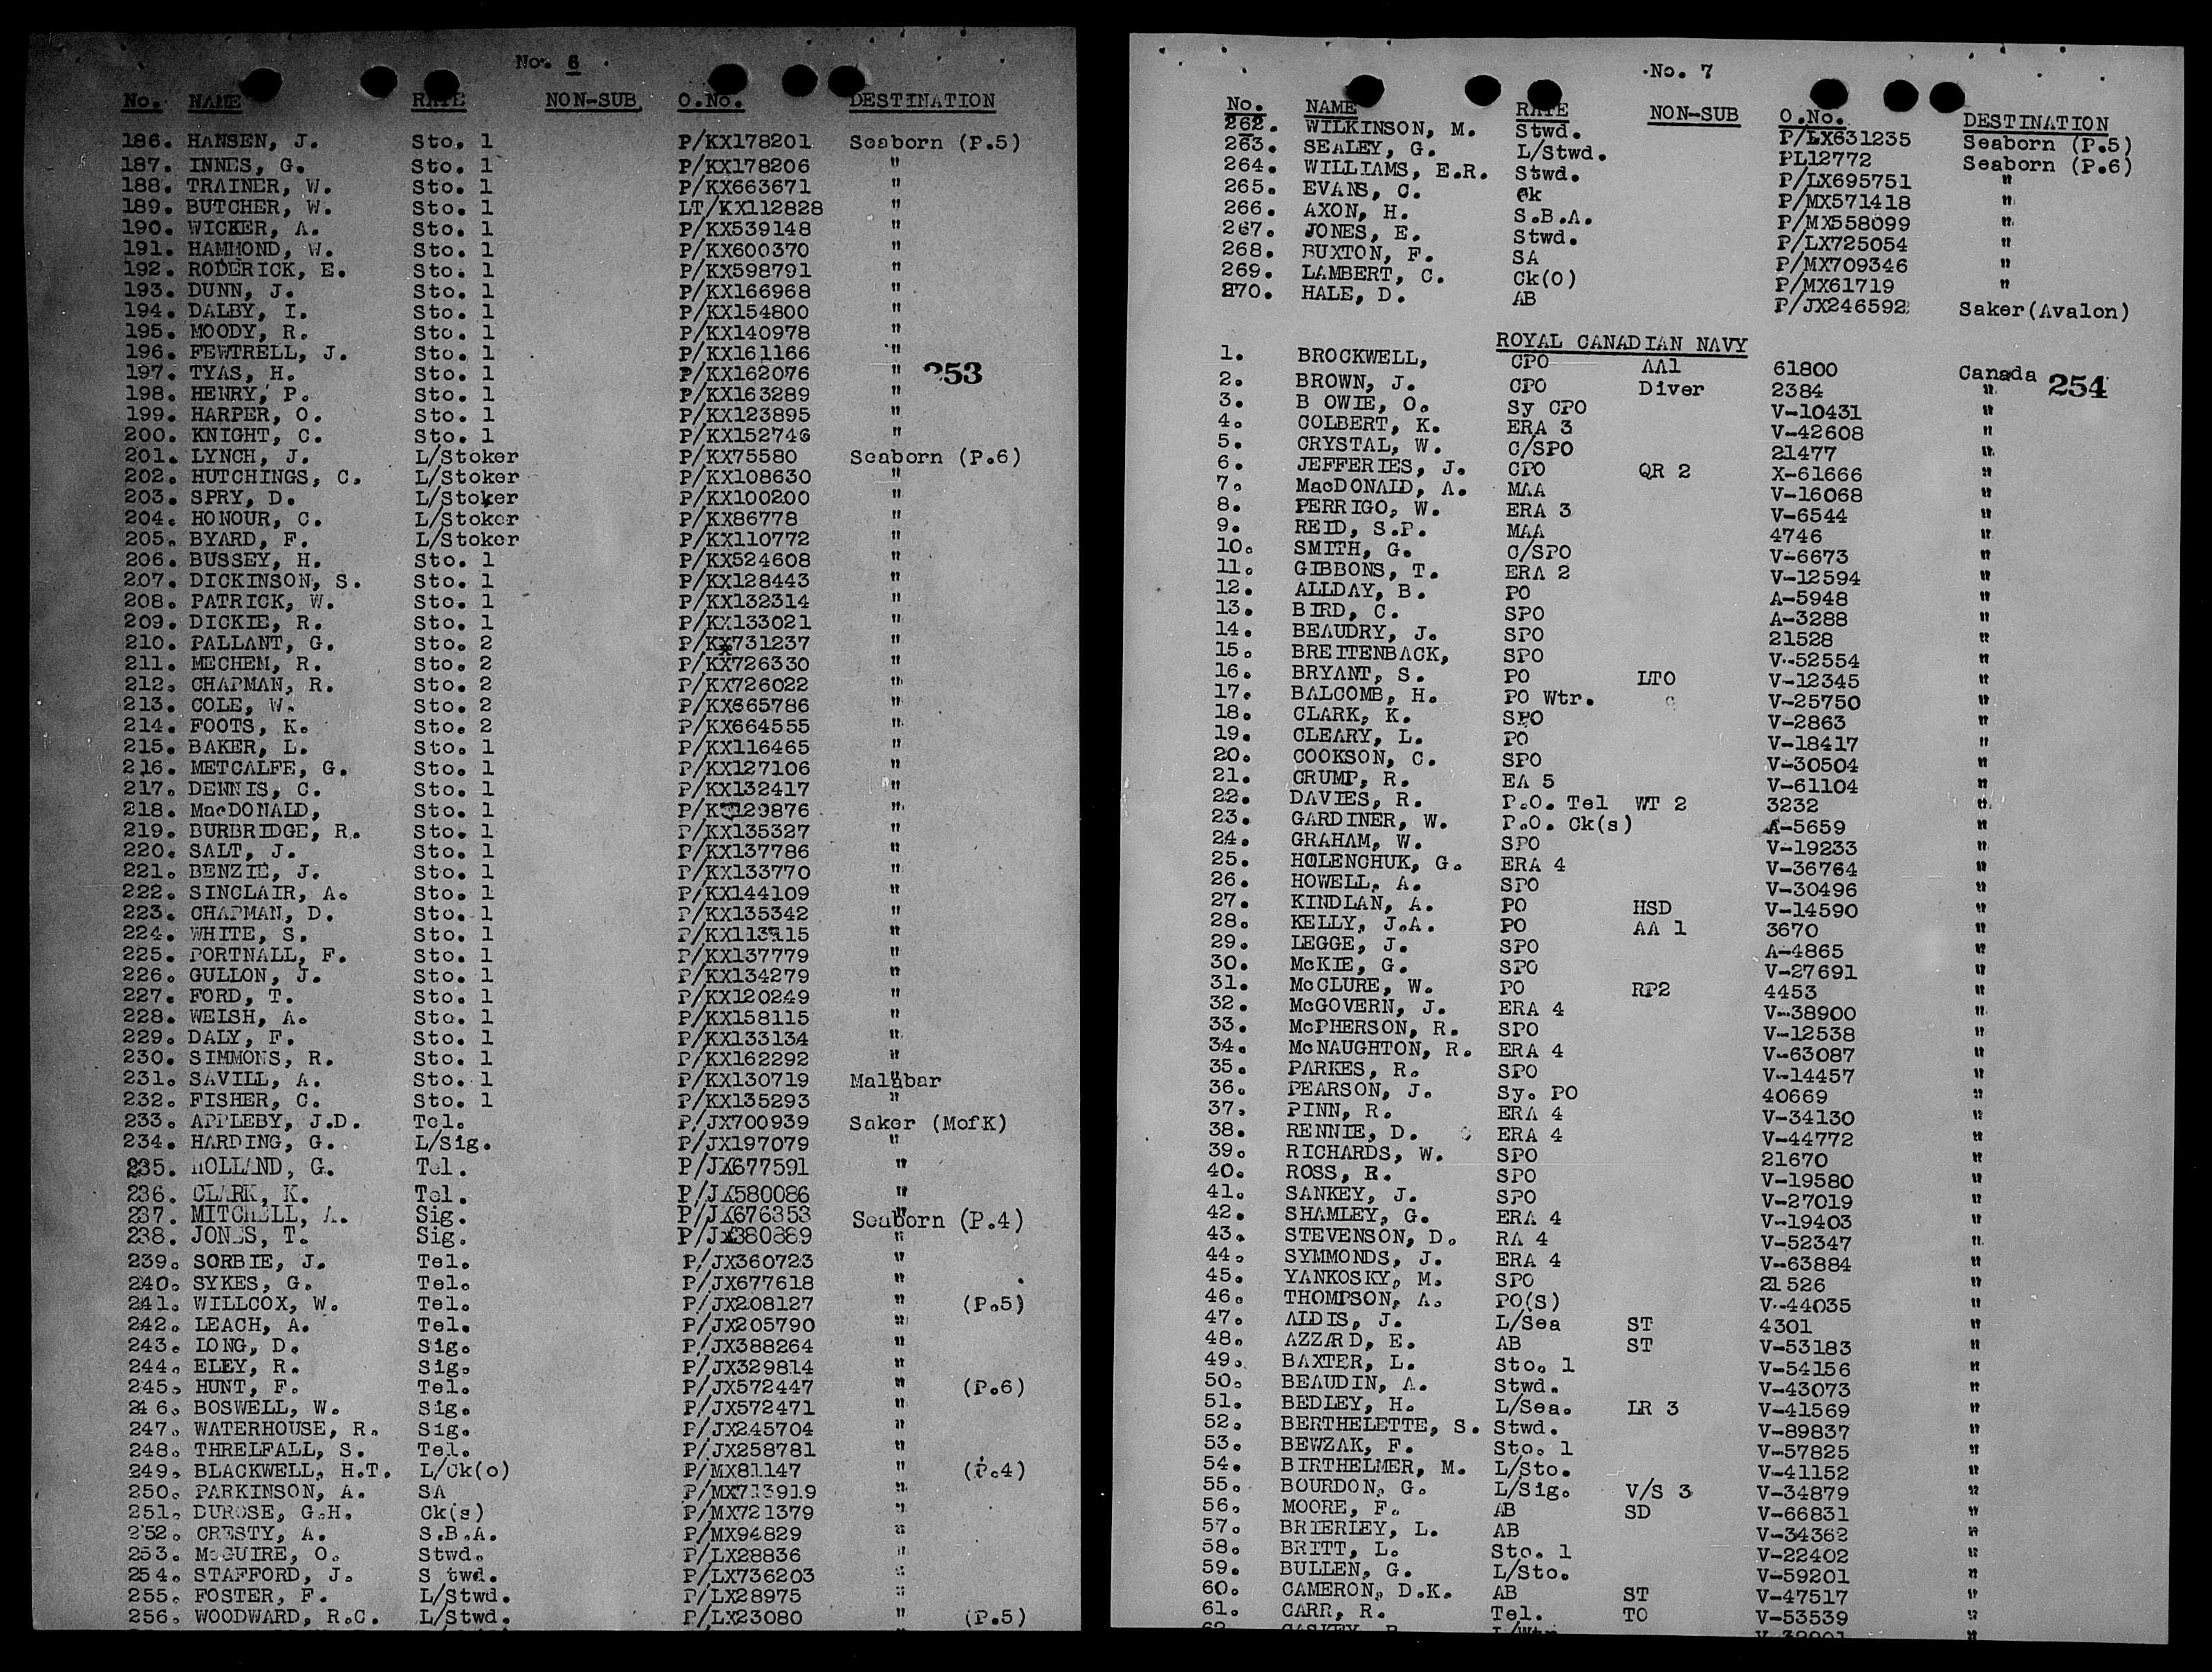 No. 6
No. NAME RATE NON-SUB. O.No. DESTINATION
186. HANSEN, J. Sto. 1 P/KX178201 Seaborn (P.5)
187. INNES, G. Sto. 1 P/KX178206 "
188. TRAINER, W. Sto. 1 P/KX663671 "
189. BUTCHER, W. Sto. 1 LT/KX112828 "
190. WICKER, A. Sto. 1 P/KX539148 "
191. HAMMOND, W. Sto. 1 P/KX600370 "
192. RODERICK, E. Sto. 1 P/KX598791 "
193. DUNN, J. Sto. 1 P/KX166968 "
194. DALBY, I. Sto. 1 P/KX154800 "
195. MOODY, R. Sto. 1 P/KX140978 "
196. FEWTRELL, J. Sto. 1 P/KX161166 "
197. TYAS, H. Sto. 1 P/KX162076 " 253
198. HENRY, P. Sto. 1 P/KX163289 "
199. HARPER, O. Sto. 1 P/KX123895 "
200. KNIGHT, C. Sto. 1 P/KX152746 "
201. LYNCH, J. L/Stoker P/KX75580 Seaborn (P.6)
202. HUTCHINGS, C. L/Stoker P/KX108630 "
203. SPRY, D. L/Stoker P/KX100200 "
204. HONOUR, C. L/Stoker P/KX86778 "
205. BYARD, F. L/Stoker P/KX110772 "
206. BUSSEY, H. Sto. 1 P/KX524608 "
207. DICKINSON, S. Sto. 1 P/KX128443 "
208. PATRICK, W. Sto. 1 P/KX132314 "
209. DICKIE, R. Sto. 1 P/KX133021 "
210. PALLANT, G. Sto. 2 P/KX731237 "
211. MECHEM, R. Sto. 2 P/KX726330 "
212. CHAPMAN, R. Sto. 2 P/KX726022 "
213. COLE, W. Sto. 2 P/KX665786 "
214. FOOTS, K. Sto. 2 P/KX664555 "
215. BAKER, L. Sto. 1 P/KX116465 "
216. METCALFE, G. Sto. 1 P/KX127106 "
217. DENNIS, C. Sto. 1 P/KX132417 "
218. MacDONALD, Sto. 1 P/KX129876 "
219. BURBRIDGE, R. Sto. 1 P/KX135327 "
220. SALT, J. Sto. 1 P/KX137786 "
221. BENZIE, J. Sto. 1 P/KX133770 "
222. SINCLAIR, A. Sto. 1 P/KX144109 "
223. CHAPMAN, D. Sto. 1 P/KX135342 "
224. WHITE, S. Sto. 1 "
225. PORTNALL, F. Sto. 1 P/KX137779 "
226. GULLON, J. Sto. 1 P/KX134279 "
227. FORD, T. Sto. 1 P/KX120249 "
228. WELSH, A. Sto. 1 P/KX158115 "
229. DALY, F. Sto. 1 P/KX133134 "
230. SIMMONS, R. Sto. 1 P/KX162292 "
231. SAVILL, A. Sto. 1 P/KX130719 Malabar
232. FISHER, C. Sto. 1 P/KX135293 "
233. APPLEBY, J.D. Tel. P/JX700939 Saker (MofK)
234. HARDING, G. L/Sig. P/JX197079 "
235. HOLLAND, G. Tel. P/JX677591 "
236. CLARK, K. Tel. P/JX580086 "
237. MITCHELL, A. Sig. P/JX676353 Seaborn (P.4)
238. JONES, T. Sig. P/JX380889 "
239. SORBIE, J. Tel. P/JX360723 "
240. SYKES, G. Tel. P/JX677618 "
241. WILLCOX, W. Tel. P/JX208127 " (P.5)
242. LEACH, A. Tel. P/JX205790 "
243. LONG, D. Sig. P/JX388264 "
244. ELEY, R. Sig. P/JX329814 "
245. HUNT, F. Tel. P/JX572447 " (P.6)
246. BOSWELL, W. Sig. P/JX572471 "
247. WATERHOUSE, R. Sig. P/JX245704 "
248. THRELFALL, S. Tel. P/JX258781 "
249. BLACKWELL, H.T. L/Ck(o) P/MX81147 " (P.4)
250. PARKINSON, A. SA P/MX713919 "
251. DUROSE, G.H. Ck(s) P/MX721379 "
252. CRESTY, A. S.B.A. P/MX94829 "
253. McGUIRE, O. Stwd. P/LX28836 "
254. STAFFORD, J. S twd. P/LX736203 "
255. FOSTER, F. L/Stwd. P/LX28975 "
256. WOODWARD, R.C. L/Stwd. P/LX23080 " (P.5)
No. 7
No. NAME RATE NON-SUB O.No. DESTINATION
262. WILKINSON, M. Stwd. P/LX631235 Seaborn (P.5)
263. SEALEY, G. L/Stwd. PL12772 Seaborn (P.6)
264. WILLIAMS, E.R. Stwd. P/LX695751 "
265. EVANS, C. Ck P/MX571418 "
266. AXON, H. S.B.A. P/MX558099 "
267. JONES, E. Stwd. P/LX725054 "
268. BUXTON, F. SA P/MX709346 "
269. LAMBERT, C. Ck(O) P/MX61719 "
270. HALE, D. AB P/JX246592 Saker(Avalon)
ROYAL CANADIAN NAVY
1. BROCKWELL, CPO AA1 61800 Canada 254
2. BROWN, J. CPO Diver 2384 "
3. B OWIE, O. Sy CPO V-10431 "
4. COLBERT, K. ERA 3 V-42608 "
5. CRYSTAL, W. C/SPO 21477 "
6. JEFFERIES, J. CPO QR 2 X-61666 "
7. MacDONALD, A. MAA V-16068 "
8. PERRIGO, W. ERA 3 V-6544 "
9. REID, S.P. MAA 4746 "
10. SMITH, G. C/SPO V-6673 "
11. GIBBONS, T. ERA 2 V-12594 "
12. ALLDAY, B. PO A-5948 "
13. BIRD, C. SPO A-3288 "
14. BEAUDRY, J. SPO 21528 "
15. BREITENBACK, SPO V-52554 "
16. BRYANT, S. PO LTO V-12345 "
17. BALCOMB, H. PO Wtr. V-25750 "
18. CLARK, K. SPO V-2863 "
19. CLEARY, L. PO V-18417 "
20. COOKSON, C. SPO V-30504 "
21. CRUMP, R. EA 5 V-61104 "
22. DAVIES, R. P.O. Tel WT 2 3232 "
23. GARDINER, W. P.O. Ck(s) A-5659 "
24. GRAHAM, W. SPO V-19233 "
25. HOLENCHUK, G. ERA 4 V-36764 "
26. HOWELL, A. SPO V-30496 "
27. KINDLAN, A. PO HSD V-14590 "
28. KELLY, J.A. PO AA 1 3670 "
29. LEGGE, J. SPO A-4865 "
30. McKIE, G. SPO V-27691 "
31. McCLURE, W. PO RP2 4453 "
32. McGOVERN, J. ERA 4 V-38900 "
33. McPHERSON, R. SPO V-12538 "
34. McNAUGHTON, R. ERA 4 V-63087 "
35. PARKES, R. SPO V-14457 "
36. PEARSON, J. Sy. PO 40669 "
37. PINN, R. ERA 4 V-34130 "
38. RENNIE, D. ERA 4 V-44772 "
39. RICHARDS, W. SPO 21670 "
40. ROSS, R. SPO V-19580 "
41. SANKEY, J. SPO V-27019 "
42. SHAMLEY, G. ERA 4 V-19403 "
43. STEVENSON, D. RA 4 V-52347 "
44. SYMMONDS, J. ERA 4 V-63884 "
45. YANKOSKY, M. SPO 21526 "
46. THOMPSON, A. PO(S) V-44035 "
47. ALDIS, J. L/Sea ST 4301 "
48. AZZARD, E. AB ST V-53183 "
49. BAXTER, L. Sto. 1 V-54156 "
50. BEAUDIN, A. Stwd. V-43073 "
51. BEDLEY, H. L/Sea. LR 3 V-41569 "
52. BERTHELETTE, S. Stwd. V-89837 "
53. BEWZAK, F. Sto. 1 V-57825 "
54. BIRTHELMER, M. L/Sto. V-41152 "
55. BOURDON, G. L/Sig. V/S 3 V-34879 "
56. MOORE, F. AB SD V-66831 "
57. BRIERLEY, L. AB V-34362 "
58. BRITT, L. Sto. 1 V-22402 "
59. BULLEN, G. L/Sto. V-59201 "
60. CAMERON, D.K. AB ST V-47517 "
61. CARR, R. Tel. TO V-53539 "